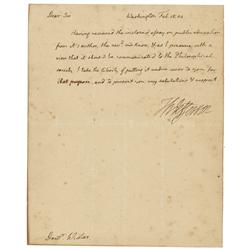 Dear Sir Washington Feb.
Having received the inclosed essay on public education
from it's author, the rev.^d mr Knox, & as I presume, with a
view that it should be communicated to the Philosophical
society, I take the liberty of putting it under cover to you for
that purpose, and to present you my salutations & respect
Th: Jefferson
Doct^r Wistar